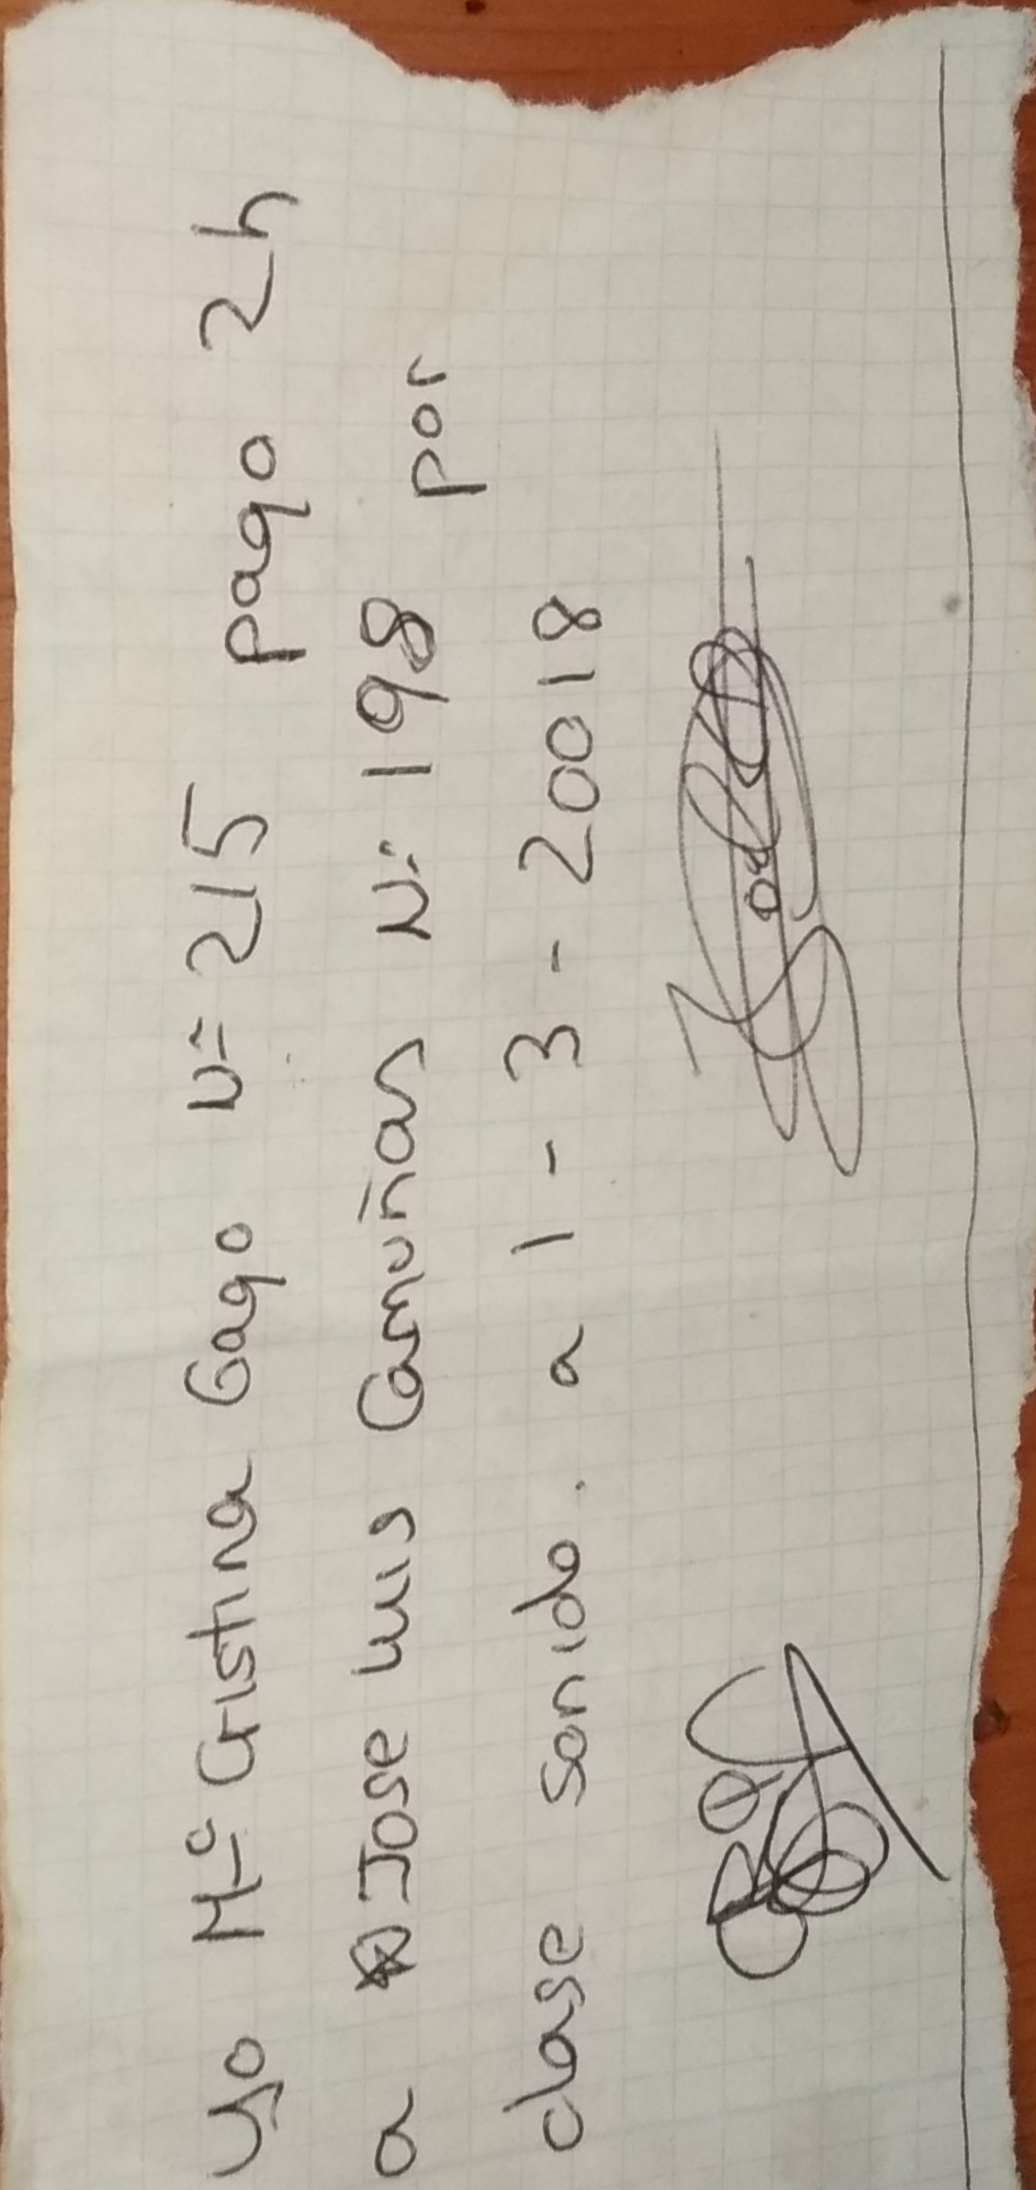 Yo Mª Cristina Gago Nº 215 pago 2h
a Jose Luis Camuñas Nº 198 por
clase sonido. a 1 - 3 - 20018